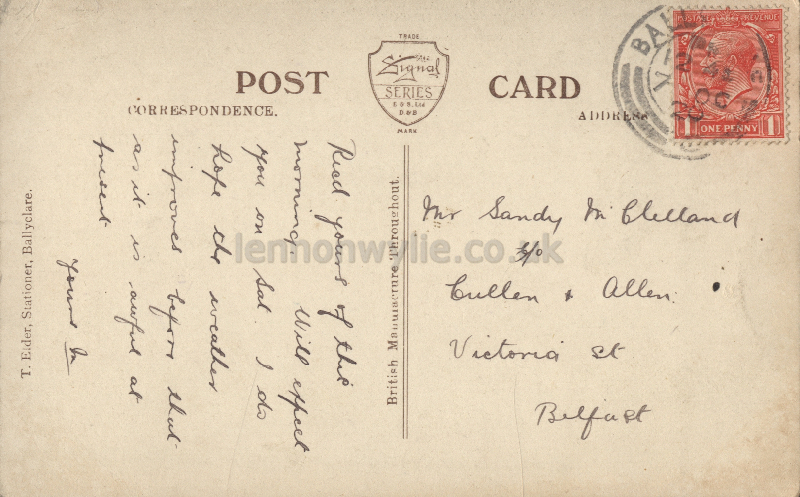 TRADE
Signal
SERIES
E & S. Ltd
D & B
MARK
POST CARD
CORRESPONDENCE.
ADDRESS
POSTAGE REVENUE
1 ONE PENNY 1
BAL
20 OC
Recd yours of this
morning. Will expect
you on Sat. I do
hope the weather
improves before that
as it is awful at
present
Yours
Mr Sandy McClelland
c/o
Cullen & Allen
Victoria St
Belfast
British Manufacture Throughout.
T. Elder, Stationer, Ballyclare.
lennonwylie.co.uk